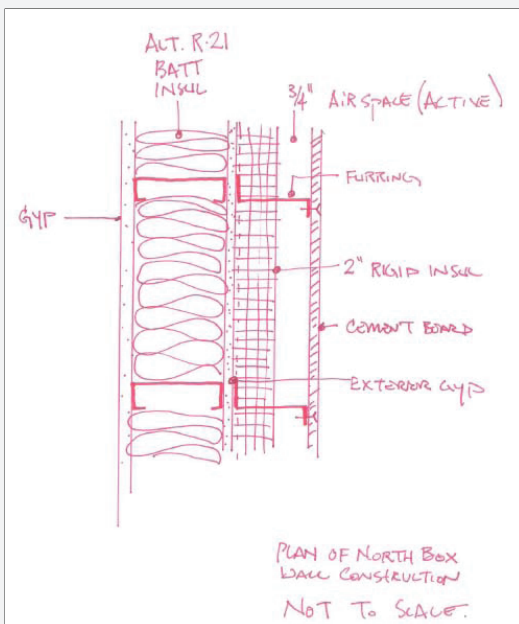 ALT. R-21
BATT
INSUL
3/4" AIRSPACE (ACTIVE)
FURRING
GYP
2" RIGID INSUL
CEMENT BOARD
EXTERIOR GYP
PLAN OF NORTH BOX
WALL CONSTRUCTION
NOT TO SCALE.